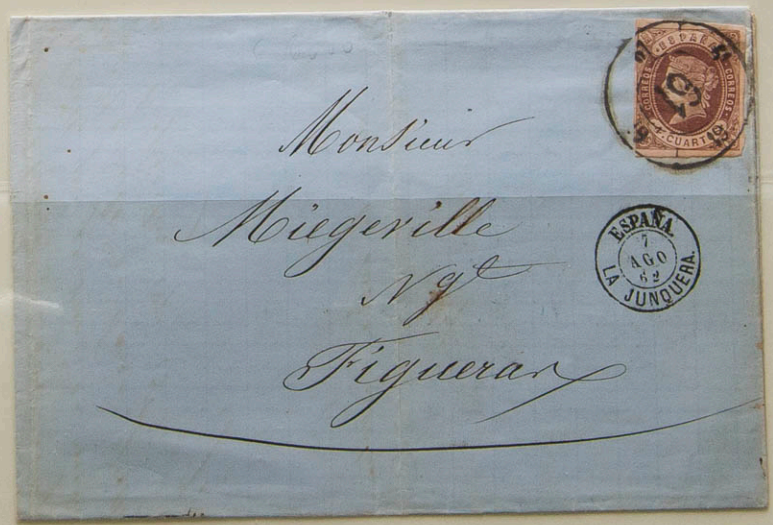 ESPAÑA
CORREOS
CORREOS
4 CUARTOS
Monsieur
Miegeville
Ngt
Figueras
ESPAÑA.
7
AGO
62
LA JUNQUERA.